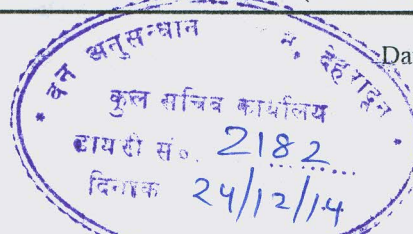 Da
* वन अनुसन्धान न, देहरादून *
कुल सचिव कार्यालय
डायरी सं०. 2182
दिनांक 24/12/14